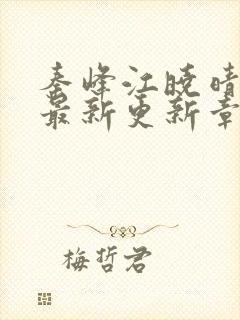 秦峰江晓晴
最新更新章
梅哲君